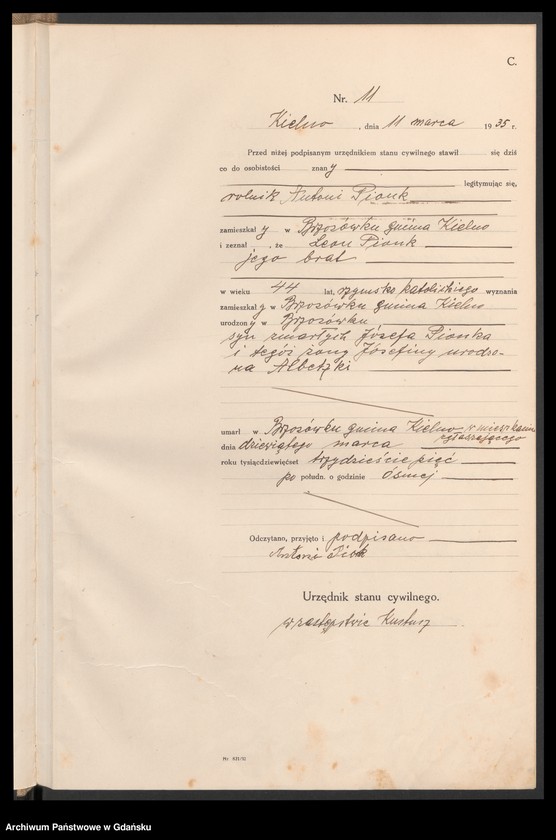 C.
Nr. 11
Kielno, dnia 11 marca 1935 r.
Przed niżej podpisanym urzędnikiem stanu cywilnego stawił się dziś
co do osobistości znany
legitymując się,
rolnik Antoni Pionk
zamieszkały w Brzosówku gmina Kielno
i zeznał, że Leon Pionk
jego brat
w wieku 44 lat, rzymsko katolickiego wyznania
zamieszkały w Brzosówku gmina Kielno
urodzony w Brzosówku
syn zmarłych Józefa Pionka
i tegoż żony Józefiny urodzo-
na
umarł w Brzosówku gmina Kielno w mieszkaniu
zgłaszającego
dnia dziewiątego marca
roku tysiącdziewięćset trzydzieście pięć
po połudn. o godzinie ósmej
Odczytano, przyjęto i podpisano
Antoni
Urzędnik stanu cywilnego.
w zastępstwie
Archiwum Państwowe w Gdańsku